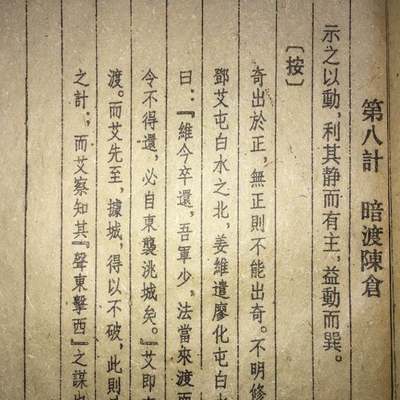 第八計　暗渡陳倉
示之以動，利其静而有主，益動而巽。
〔按〕
奇出於正，無正則不能出奇。不明修
鄧艾屯白水之北，姜維遣廖化屯白水
曰：『維今卒還，吾軍少，法當來渡而
令不得還，必自東襲洮城矣。』艾即
渡。而艾先至，據城，得以不破，此則
之計；而艾察知其『聲東擊西』之謀也